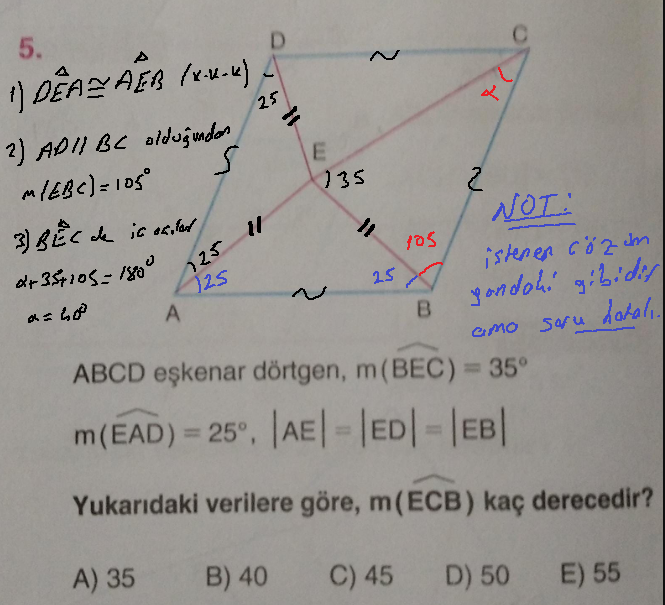 5.
D
C
1) DEA ≅ AEB (K-K-K)
25
α
2) AD // BC olduğundan
m(EBC) = 105°
E
35
3) BEC de iç açılar
α+35+105 = 180°
α = 40°
25
25
105
25
A
B
NOT:
istenen çözüm
yandaki gibidir
ama soru hatalı.
ABCD eşkenar dörtgen, m(BEC) = 35°
m(EAD) = 25°, |AE| = |ED| = |EB|
Yukarıdaki verilere göre, m(ECB) kaç derecedir?
A) 35 B) 40 C) 45 D) 50 E) 55